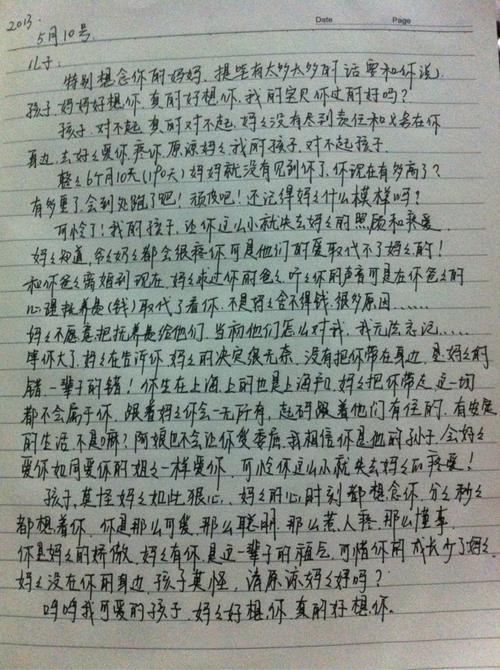 2013.
Date Page
5月10号.
儿子:
特别想念你的妈妈, 提笔有太多太多的话要和你说,
孩子.妈妈好想你.真的好想你.我的宝贝你过的好吗?
孩子.对不起.真的对不起.妈妈没有尽到责任和义务在你
身边.去好好爱你.疼你.原谅妈妈我的孩子.对不起孩子.
整整6个月10天(190天)妈妈就没有见到你了.你现在有多高了?
有多重了.会到处跑了吧!顽皮吧!还记得妈妈什么模样吗?
可怜了!我的孩子.让你这么小就失去妈妈的照顾和疼爱.
妈妈知道.爷奶都会很疼你.可是他们的爱取代不了妈妈的!
和你爸爸离婚到现在.妈妈求过你的爸爸.听听你的声音可是在你爸爸的
心理抚养费(钱)取代了看你.不是妈妈舍不得钱.很多原因……
妈妈不愿意把抚养费给他们.当初他们怎么对我.我无法忘记……
等你大了.妈妈在告诉你.妈妈的决定很无奈.没有把你带在身边.是妈妈的
错.一辈子的错!你生在上海.上的也是上海户口.妈妈把你带走.这一切
都不会属于你.跟着妈妈你会一无所有.起码跟着他们有住的.有安定
的生活.不是嘛?阿娘也不会让你受委屈.我相信你是他的孙子.会好好
爱你.如同爱你的姐姐一样爱你.可怜你这么小就失去妈妈的疼爱!
孩子.莫怪妈妈如此狠心.妈妈的心时刻都想念你.分分秒秒
都想着你.你是那么可爱.那么聪明.那么惹人疼.那么懂事.
你是妈妈的骄傲.妈妈有你.是这一辈子的福气.可惜你的成长少了妈妈.
妈妈没在你的身边.孩子莫怪.请原谅妈妈好吗?
呜呜我可爱的孩子.妈妈好想你.真的好想你.